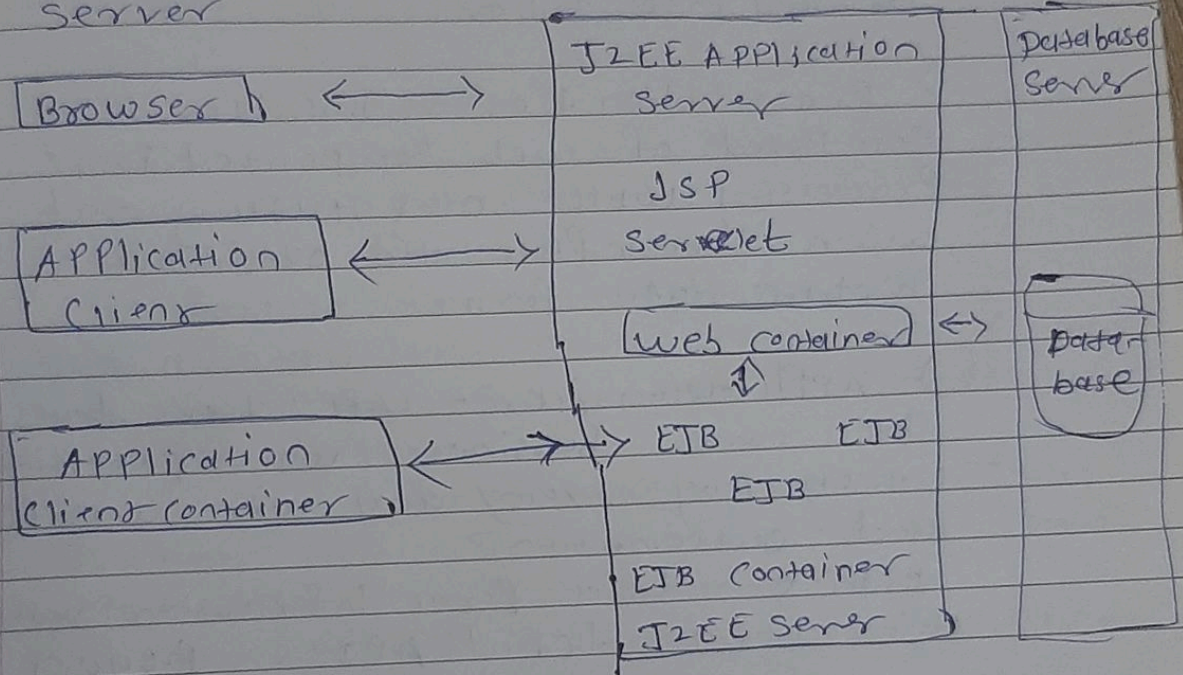 Server
Browser
Application
Client
Application
Client Container
J2EE Application
Server
JSP
Servlet
Web container
EJB EJB
EJB
EJB Container
J2EE Server
Database
Server
Data-
base